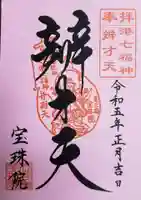 拝
港七福神
奉
辨才天
令和五年正月吉日
辨才天
宝珠院